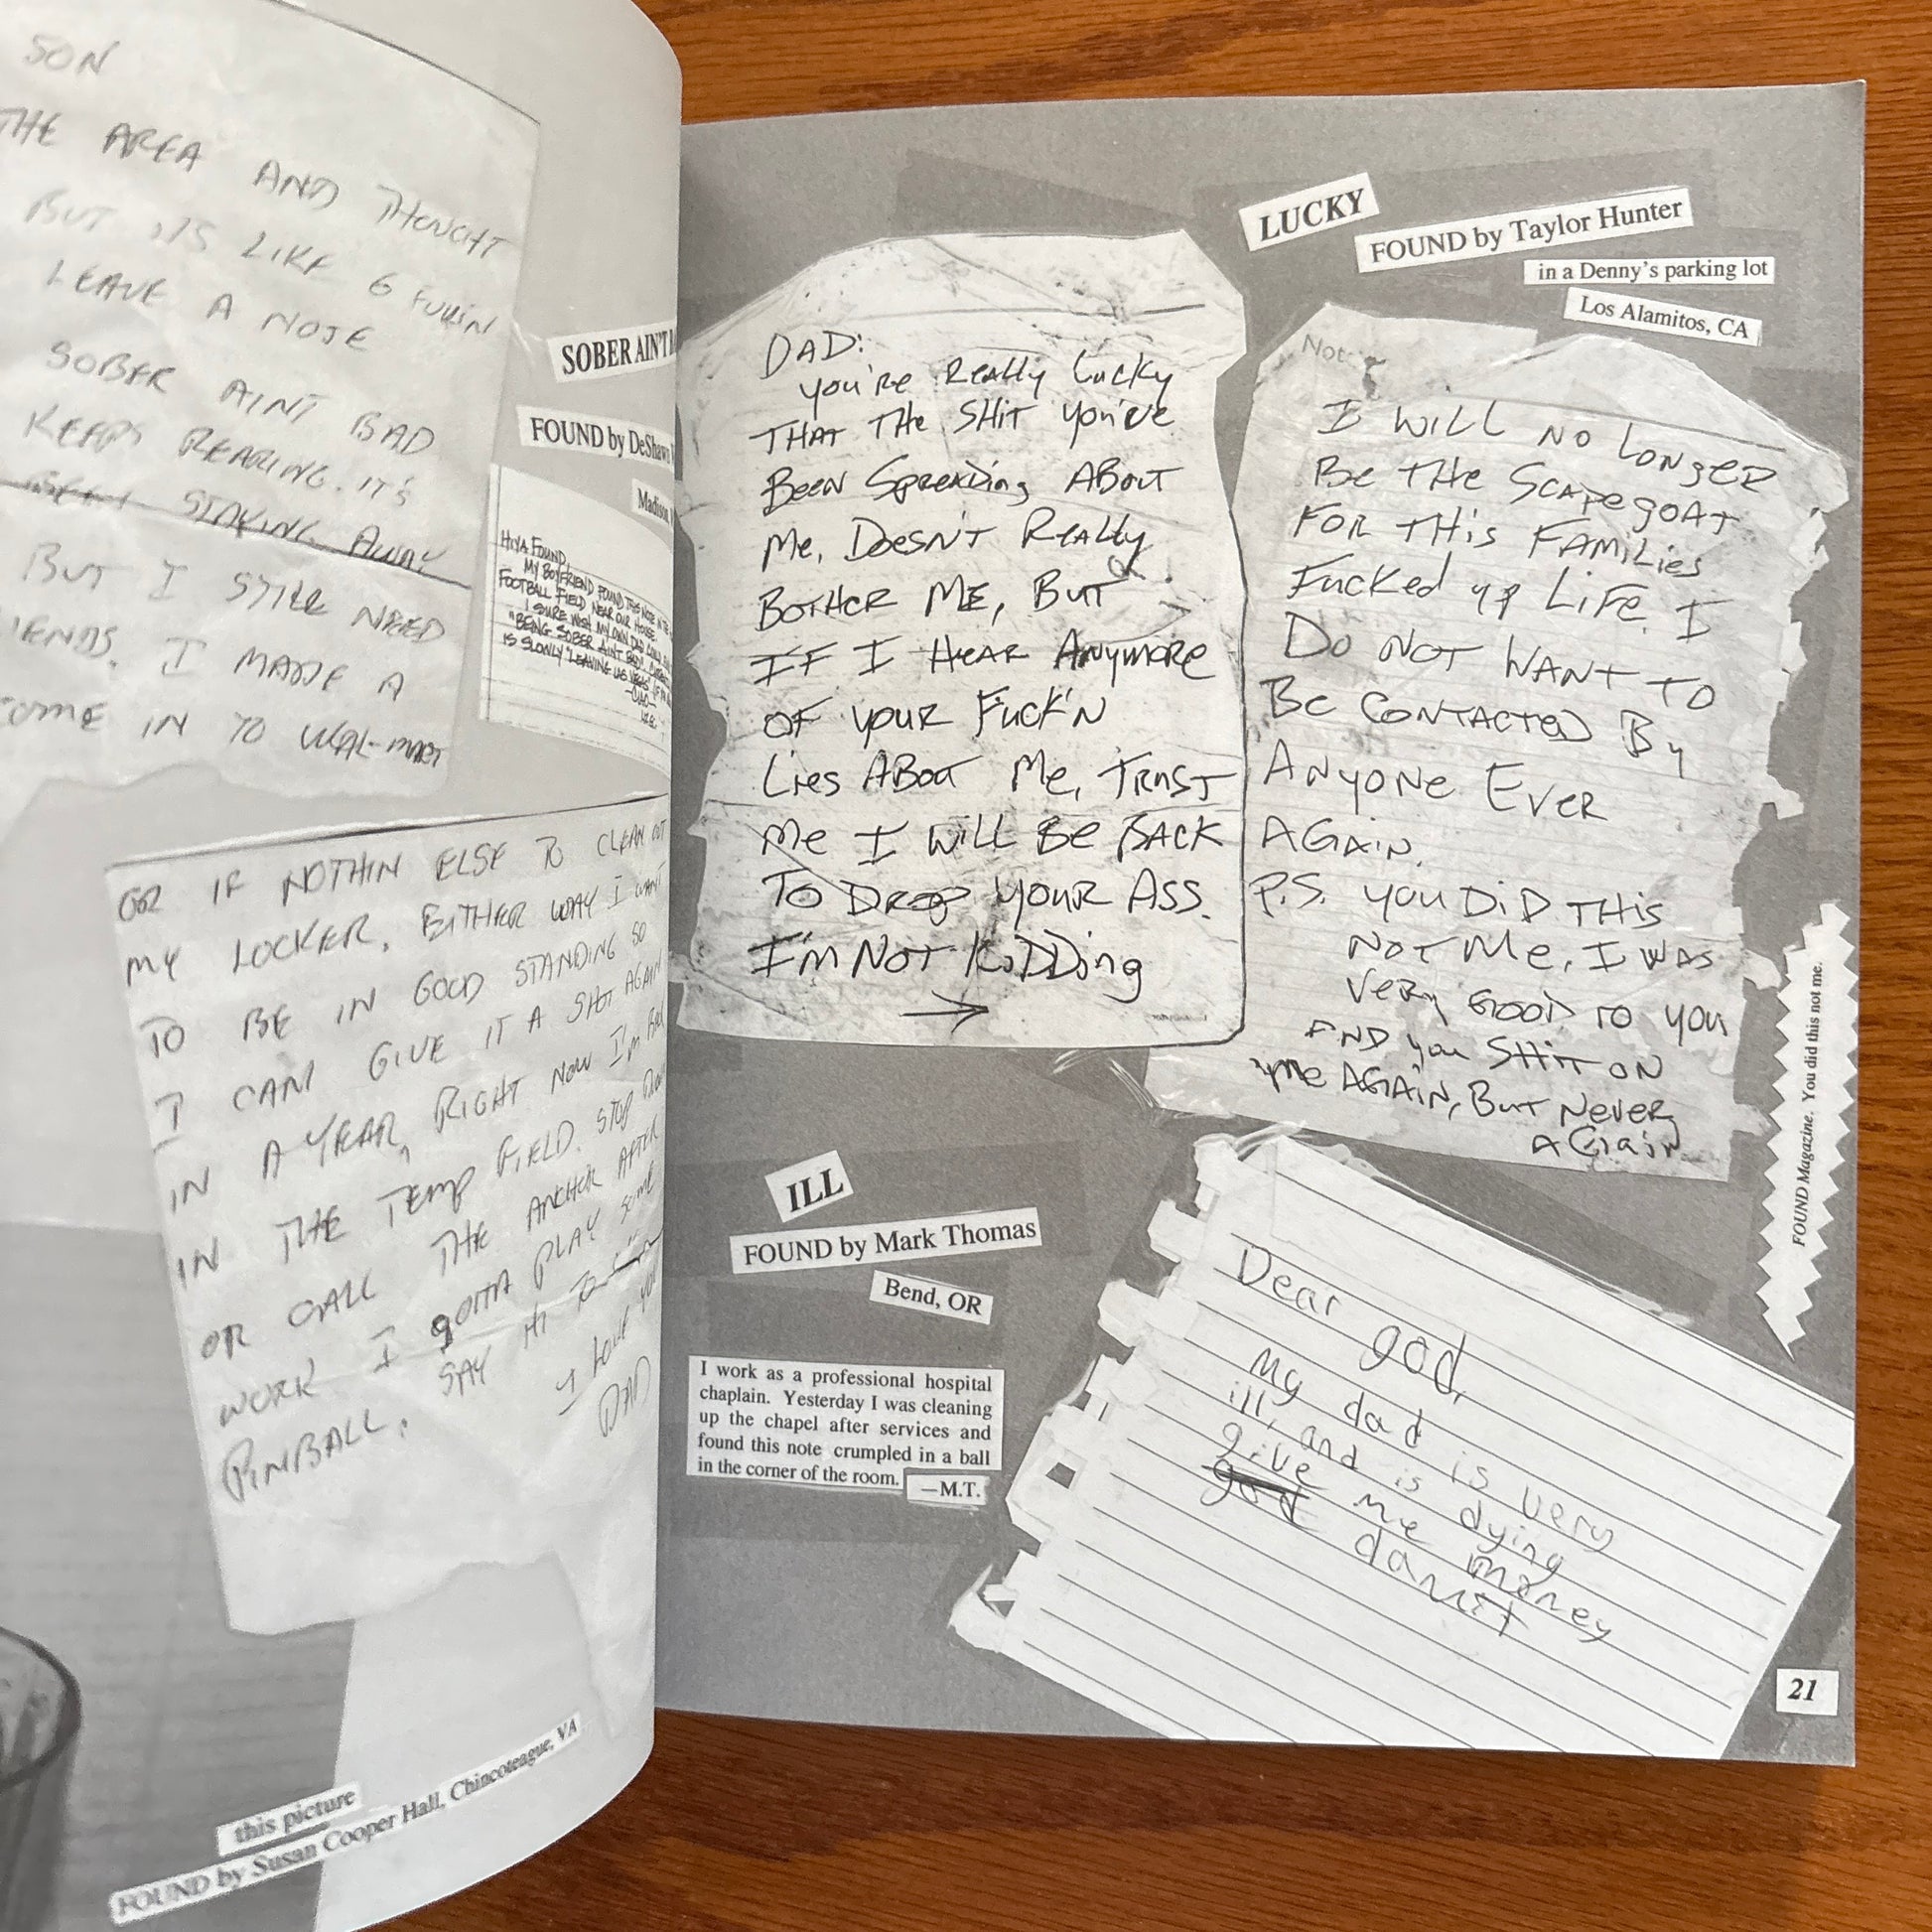 SON
THE AREA AND THOUGHT
BUT ITS LIKE 6 FUKIN
LEAVE A NOTE
SOBER AINT BAD
KEEPS REARING. IT'S
STAYING AWAY
BUT I STILL NEED
I MADE A
COME IN TO WAL-MART
OR IF NOTHIN ELSE TO CLEAN OUT
MY LOCKER. EITHER WAY I WANT
TO BE IN GOOD STANDING SO
I CAN GIVE IT A SHOT AGAIN
IN A YEAR, RIGHT NOW I'm BACK
IN THE TEMP FIELD. STOP
OR CALL THE ANCHOR AFTER
WORK I gOTTA PLAY SOME
PINBALL. SAY HI TO
I LOVE YOU
DAD
this picture
FOUND by Susan Cooper Hall, Chincoteague, VA
SOBER AIN'T
FOUND by DeShawn
Madison,
HIYA FOUND,
MY BOYFRIEND FOUND THIS NOTE IN THE
FOOTBALL FIELD NEAR OUR HOUSE.
I SURE WISH MY OWN DAD
"BEING SOBER AINT BAD"
IS SLOWLY LEAVING US
DAD:
you're Really Lucky
THAT THE SHiT you've
BEEN Spreading ABout
Me, Doesn't Really
BOTHER ME, BUT
IF I HEAR Anymore
OF your Fuck'n
Lies ABout Me, TRUST
Me I Will Be BACK
TO DROP YOUR ASS.
I'm NOT KiDDing
→
LUCKY
FOUND by Taylor Hunter
in a Denny's parking lot
Los Alamitos, CA
Not
I WiLL NO LONgeR
Be THe ScApegoAT
FOR THis FAMiLies
Fucked up LiFe. I
Do NOT WANT TO
Be CONTACTeD By
ANyONe EveR
AGAiN.
P.S. you DiD THIS
NOT Me, I WAS
VeRy GOOD TO you
AND you SHiT ON
me AGAiN, BuT NeveR
AGAiN
ILL
FOUND by Mark Thomas
Bend, OR
I work as a professional hospital
chaplain. Yesterday I was cleaning
up the chapel after services and
found this note crumpled in a ball
in the corner of the room.
—M.T.
Dear god,
my dad is very
ill, and is dying
give me money
god damit
FOUND Magazine. You did this not me.
21